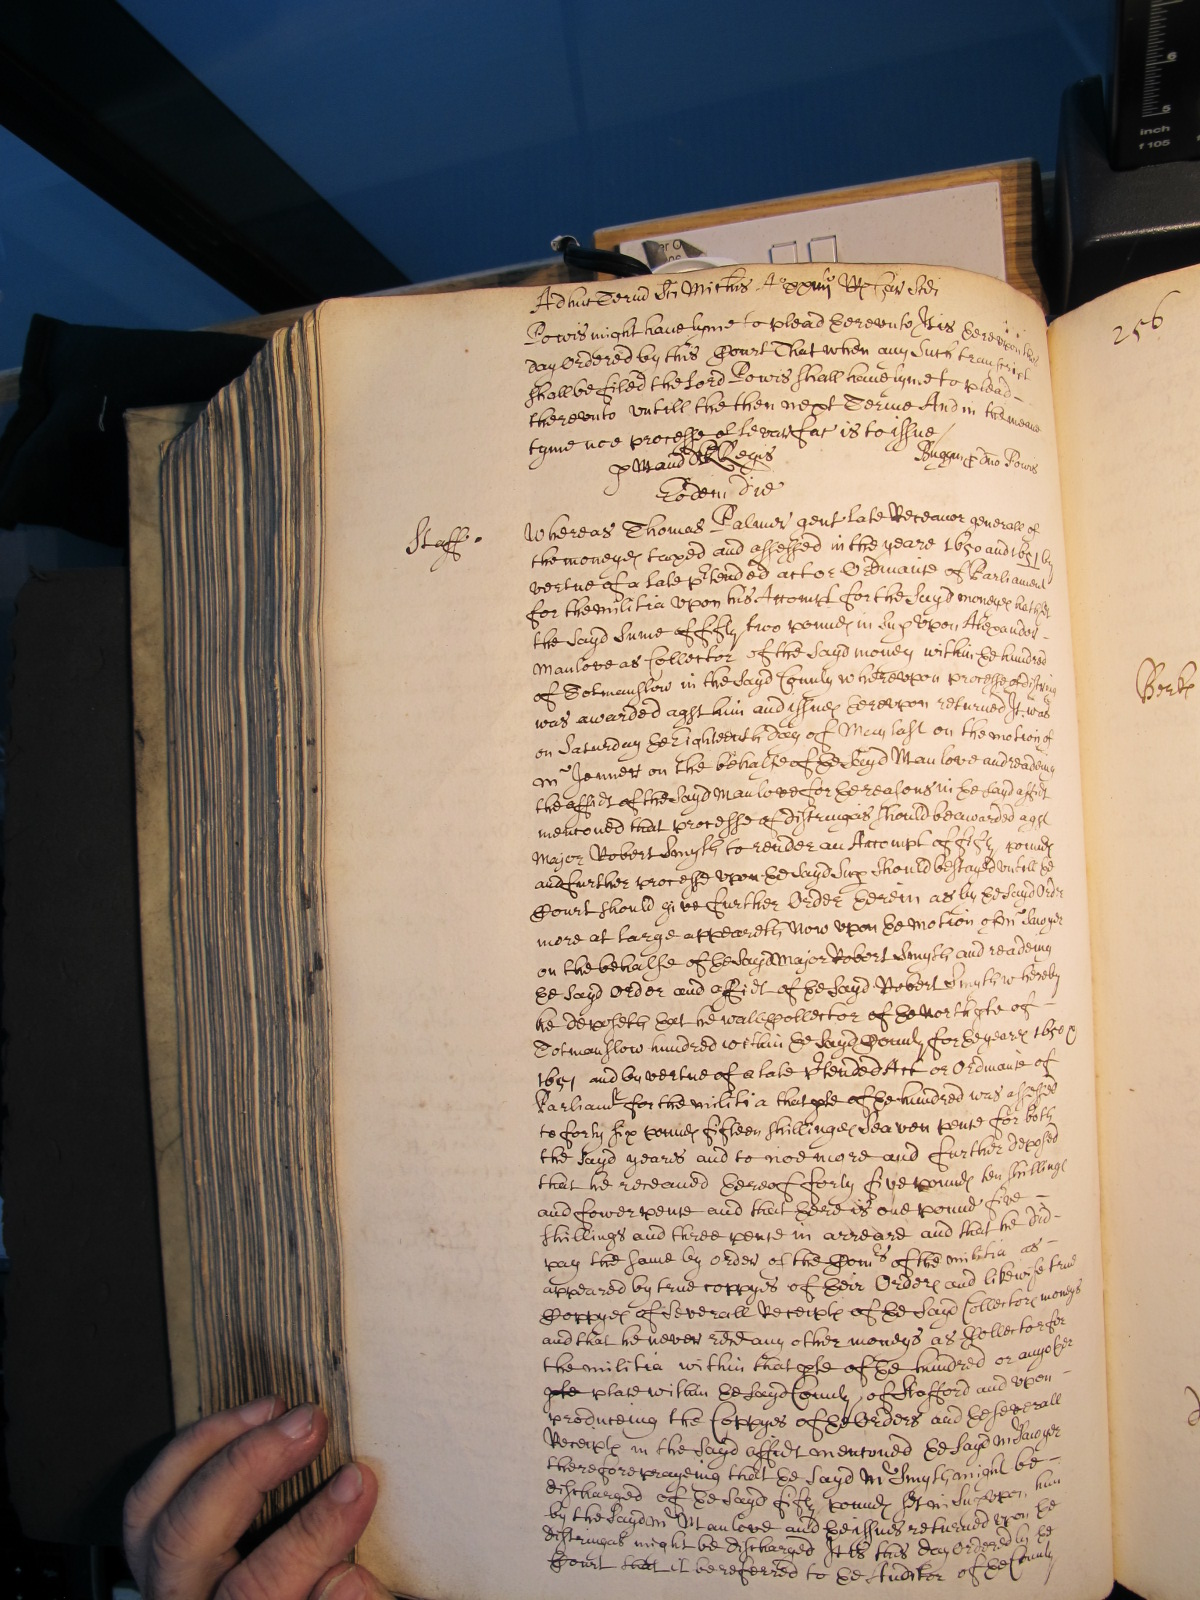 Adhuc Termino Sci Michis Ao xxiiijo Rs Car Scdi
256
Powis might have tyme to plead herevnto It is herevpon this
day Ordered by this Court That when any such transcript
shall be filed the Lord Powis shall have tyme to plead
therevnto vntill the then next Terme And in the meane
tyme noe processe of levar fac is to issue
p Mand Regis
Buggin p dno Powis
Eodem die
Staff.
Whereas Thomas Palmer gent late Receavor generall of
the moneyes taxed and assessed in the yeare 1650 and 1651 by
vertue of a late ptended act or Ordinance of Parliament
for the militia vpon his Accompt for the Sayd moneyes hath sett
the Sayd Sume of fifty two pounds in Sup vpon Alexander
Manlove as Collector of the Sayd money within the hundred
of Totmanslow in the Sayd County wherevpon processe of distring
was awarded agst him and issues therevpon returned It was
on Saturday the Eighteenth day of May last on the motion of
mr Jenner on the behalfe of the Sayd Manlove and readeing
the affidt of the Sayd Manlove for the reasons in the Sayd affidt
menconed that processe of distringas should be awarded agst
Major Robert Smyth to render an Accompt of fifty pounds
and further processe vpon the Sayd Sup should be stayed vntill the
Court should give further Order therein as by the Sayd Order
more at large appeareth Now vpon the motion of mr Sawyer
on the behalfe of the Sayd Major Robert Smyth and readeing
the Sayd Order and affidt of the Sayd Robert Smyth whereby
he deposeth that he was Collector of the North pte of
Totmanslow hundred within the Sayd County for the yeares 1650 &
1651 and by vertue of a late ptended Act or Ordinance of
Parliamt for the militia that pte of the hundred was assessed
to forty six pounds fifteen shillinges Seaven pence for both
the Sayd yeares and to noe more and further deposed
that he receaved thereof forty five pounds ten shillings
and fower pence and that there is one pound five
shillings and three pence in arreare and that he did
pay the same by order of the Comrs of the militia as
appeared by true coppyes of their Orders and likewise true
Coppyes of severall Receipts of the Sayd Collectors moneys
and that he never recd any other moneys as Collector for
the militia within that pte of the hundred or any other
pte place within the Sayd County of Stafford and vpon
produceing the Coppyes of the Orders and the severall
Receipts in the Sayd affidt menconed the Sayd mr Sawyer
therefore prayeing that the Sayd Mr Smyth might be
discharged of the Sayd fifty pounds sett in Sup vpon him
by the Sayd mr Manlove and the issues returned vpon the
distringas might be discharged It is this day Ordered by the
Court that it be referred to the Auditor of the County
Berk